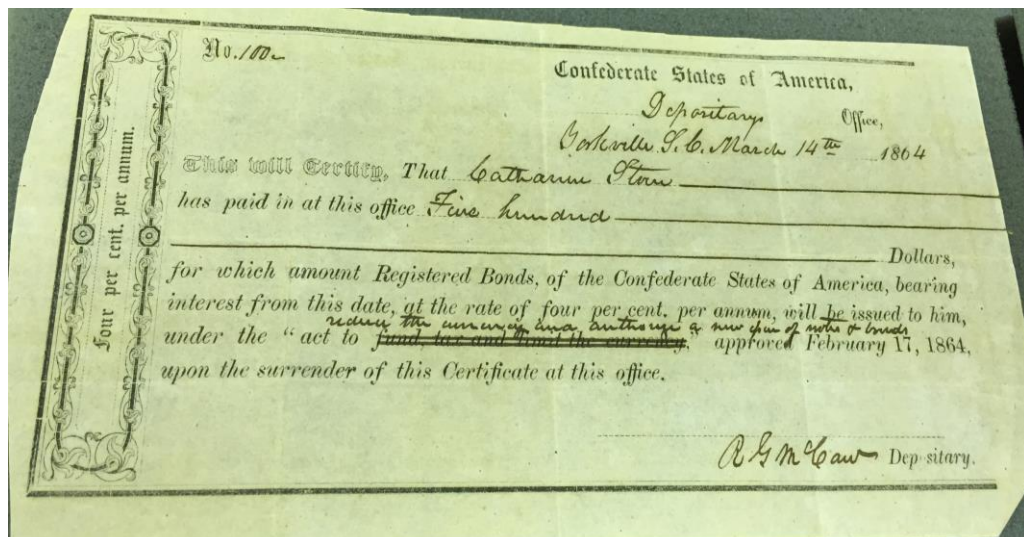 No. 100
Confederate States of America,
Depositary Office,
Yorkville S. C. March 14th 1864
This will Certify, That Catharine Stowe
has paid in at this office Five hundred
Dollars,
for which amount Registered Bonds, of the Confederate States of America, bearing
interest from this date, at the rate of four per cent. per annum, will be issued to him,
reduce the currency and authorize a new issue of notes & bonds
under the "act to fund, tax and limit the currency," approved February 17, 1864,
upon the surrender of this Certificate at this office.
R G McCaw Depositary.
Four per cent. per annum.